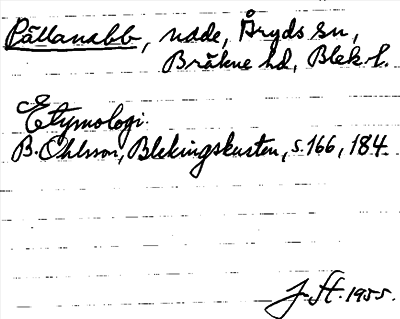 Pällanabb, udde, Åryds sn,
Bräkne hd, Blek. l.
Etymologi:
B. Ohlsson, Blekingskusten, s. 166, 184
J. St. 1955.